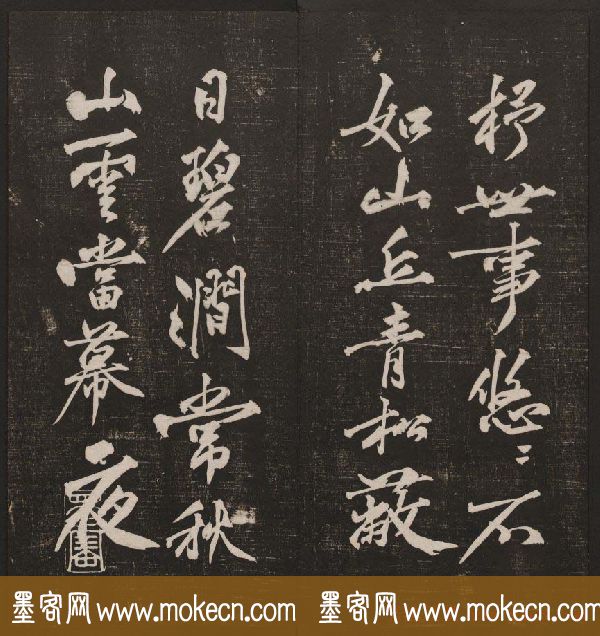 杼世事悠〻不
如山丘青松蔽
日碧澗常秋
山雲當幕夜
墨客网 www.mokecn.com 墨客网 www.mokecn.com